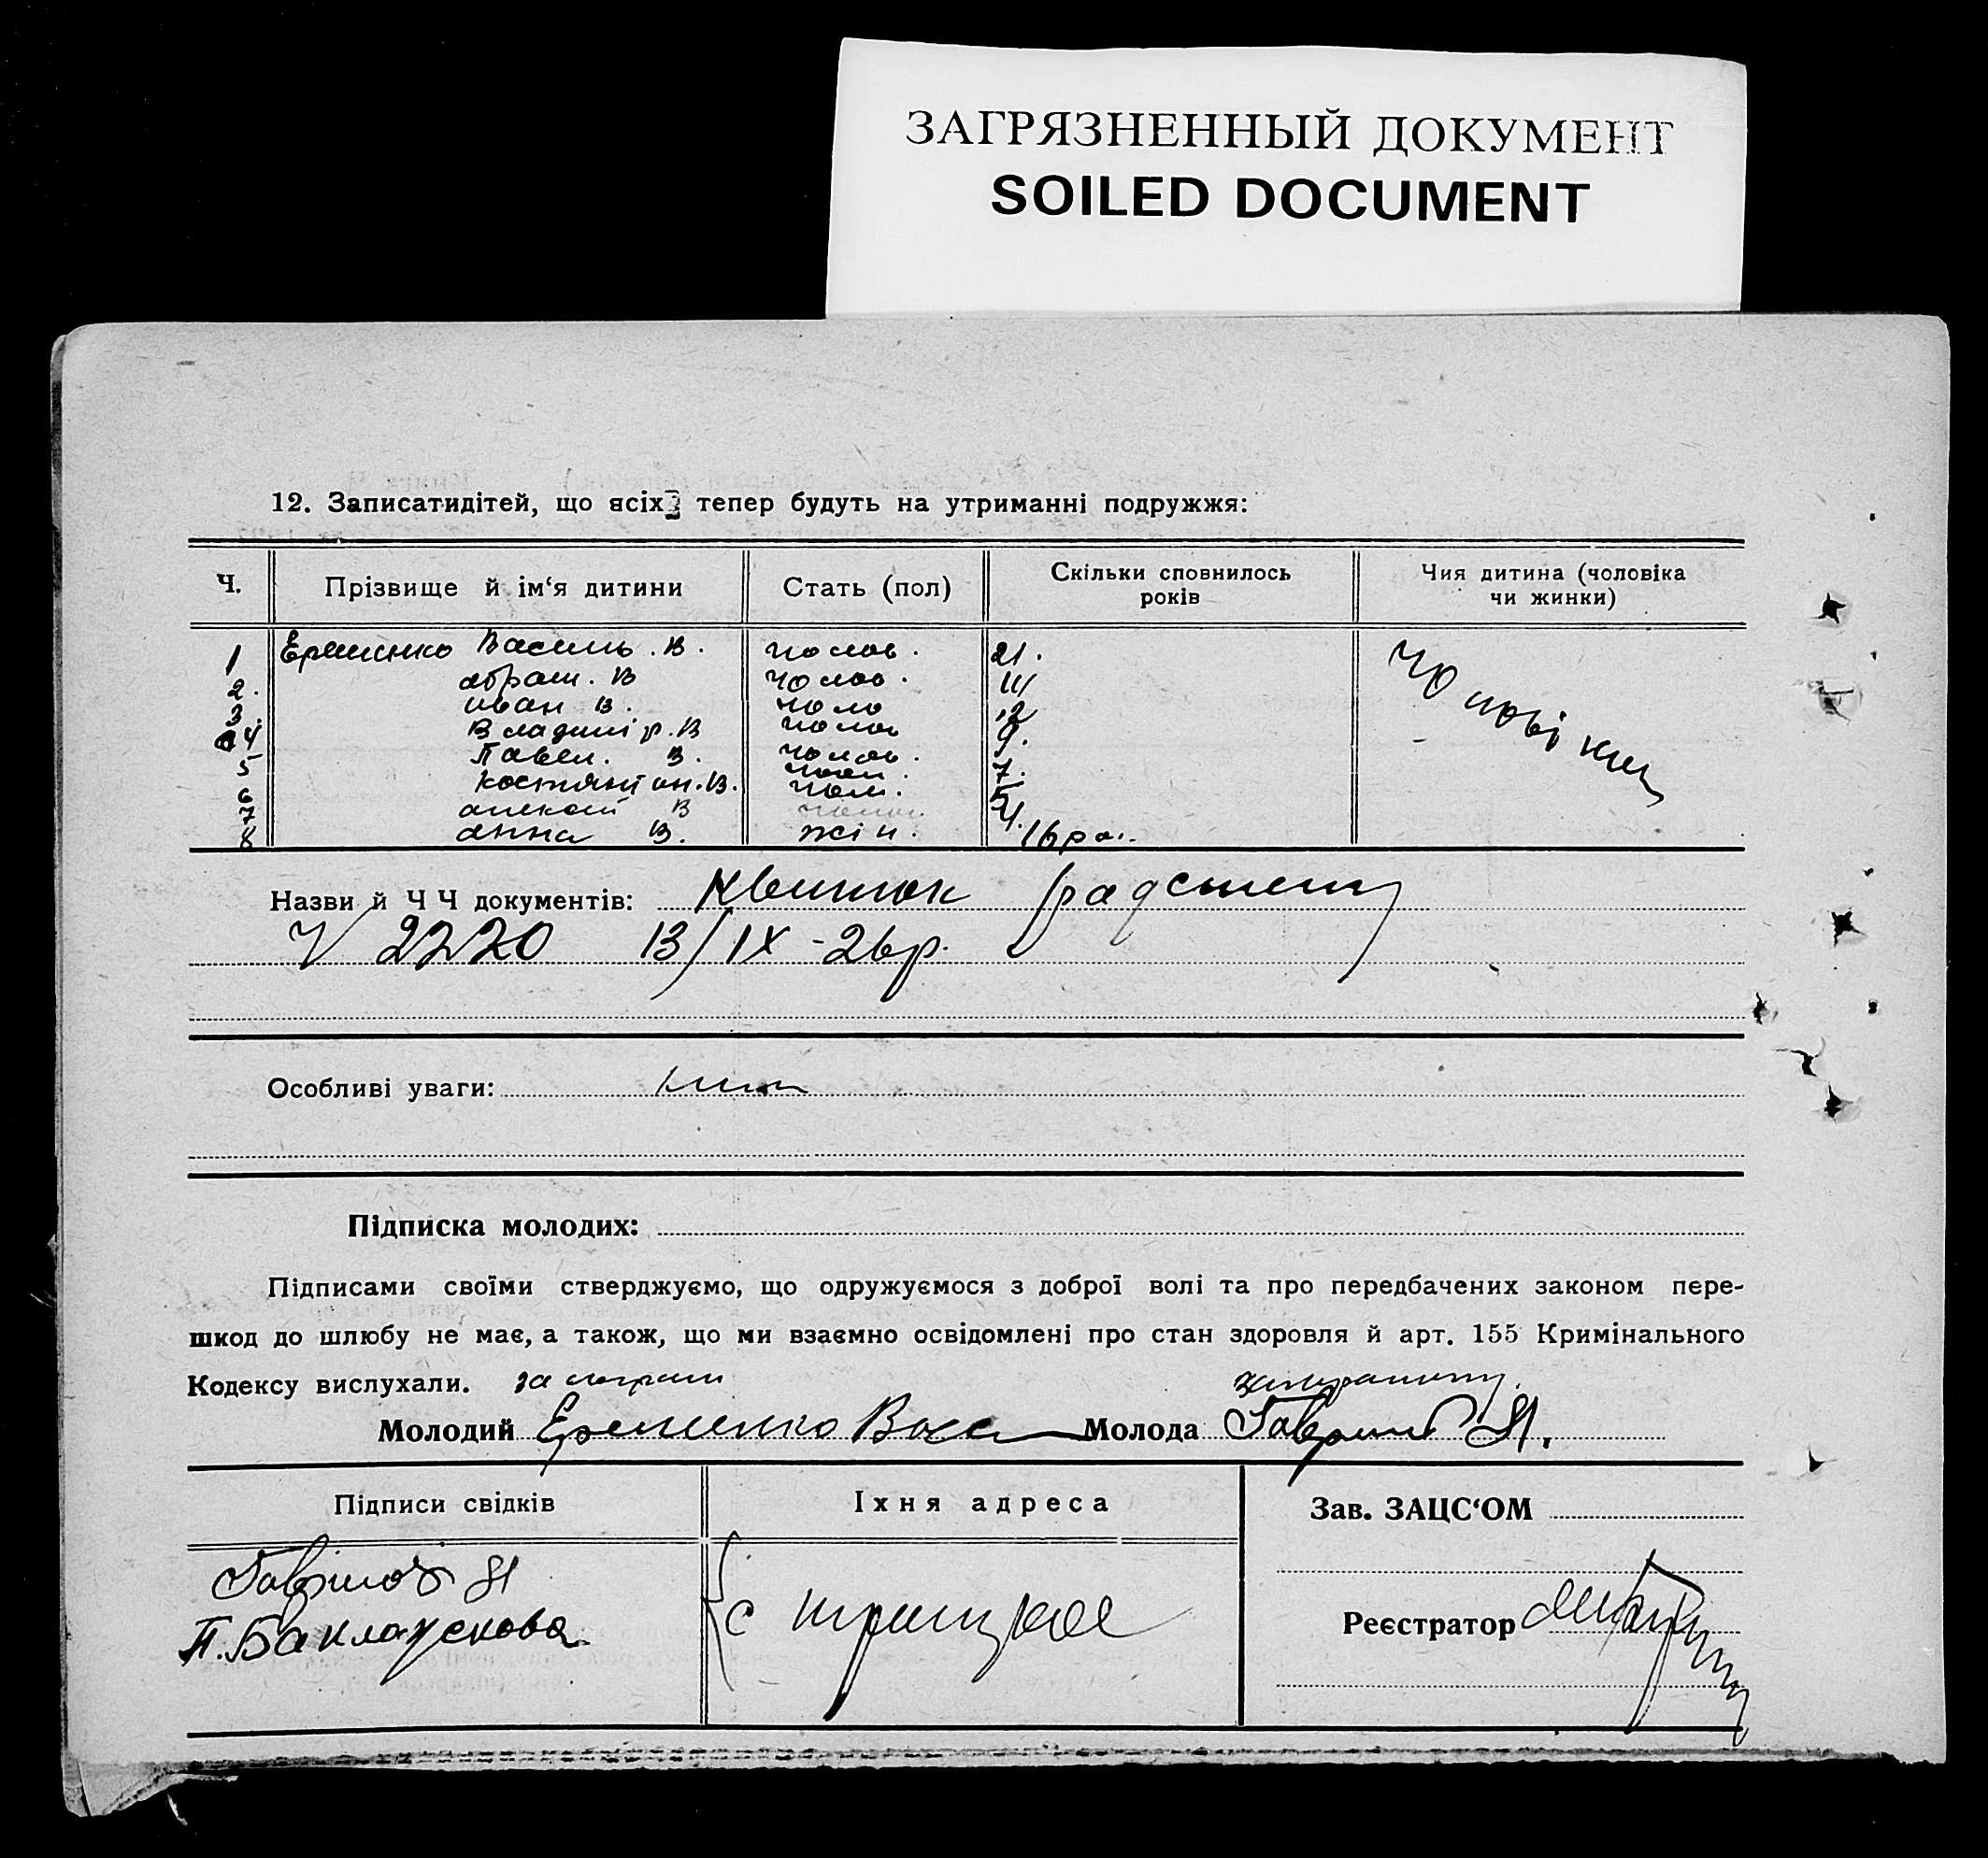 ЗАГРЯЗНЕННЫЙ ДОКУМЕНТ
SOILED DOCUMENT
12. Записатидітей, що всіх тепер будуть на утриманні подружжя:
Ч. Прізвище й ім‘я дитини Стать (пол) Скільки сповнилось років Чия дитина (чоловіка чи жинки)
1 Еременко Василь. В. чолов. 21.
2. абрам. В чолов. 14
3. иван В. чоло 12
4 Владимір. В чолов 9.
5 Павел. В. чолов. 7.
6 Костянтин. В. чол. 5
7 алексий В 4.
8 анна В. жін. 16 ро.
Чоловіка
Назви й Ч Ч документів: Квиток
№ 2220 13/IX - 26 р.
Особливі уваги:
Підписка молодих:
Підписами своїми стверджуємо, що одружуємося з доброї волі та про передбачених законом пере-
шкод до шлюбу не має, а також, що ми взаємно освідомлені про стан здоровля й арт. 155 Кримінального
Кодексу вислухали.
Молодий Еременко Молода
Підписи свідків Їхня адреса Зав. ЗАЦС‘ОМ
с троицкое
Реєстратор